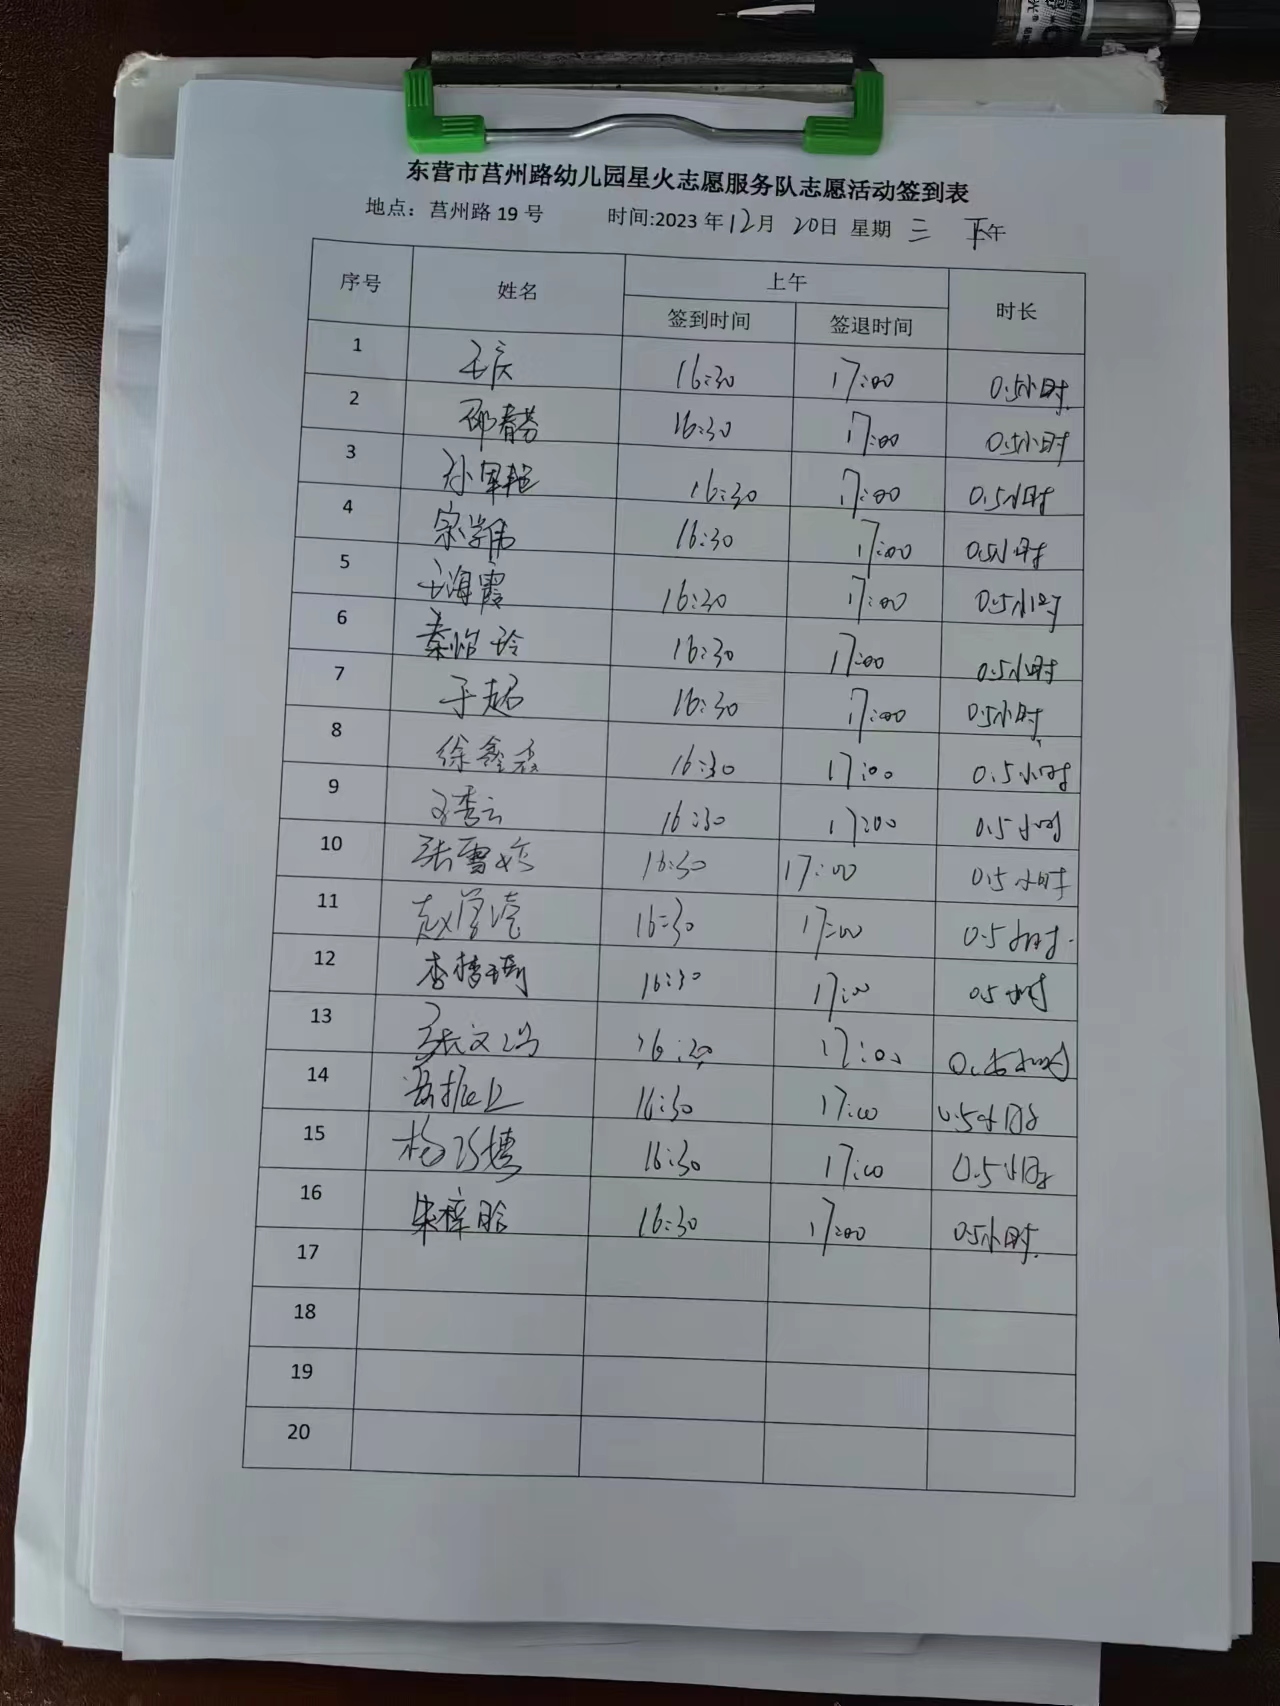 东营市莒州路幼儿园星火志愿服务队志愿活动签到表
地点：莒州路 19 号 时间:2023 年 12 月 20 日 星期 三 下午
序号 姓名 上午 时长
签到时间 签退时间
1 王庆 16:30 17:00 0.5小时
2 邵春芬 16:30 17:00 0.5小时
3 孙军艳 16:30 17:00 0.5小时
4 宗学伟 16:30 17:00 0.5小时
5 王海霞 16:30 17:00 0.5小时
6 秦怡玲 16:30 17:00 0.5小时
7 于超 16:30 17:00 0.5小时
8 徐鑫磊 16:30 17:00 0.5小时
9 16:30 17:00 0.5小时
10 张雪婷 16:30 17:00 0.5小时
11 赵 16:30 17:00 0.5小时
12 李梦琦 16:30 17:00 0.5小时
13 张文 16:30 17:00 0.5小时
14 16:30 17:00 0.5小时
15 杨 16:30 17:00 0.5小时
16 朱梓晗 16:30 17:00 0.5小时
17
18
19
20